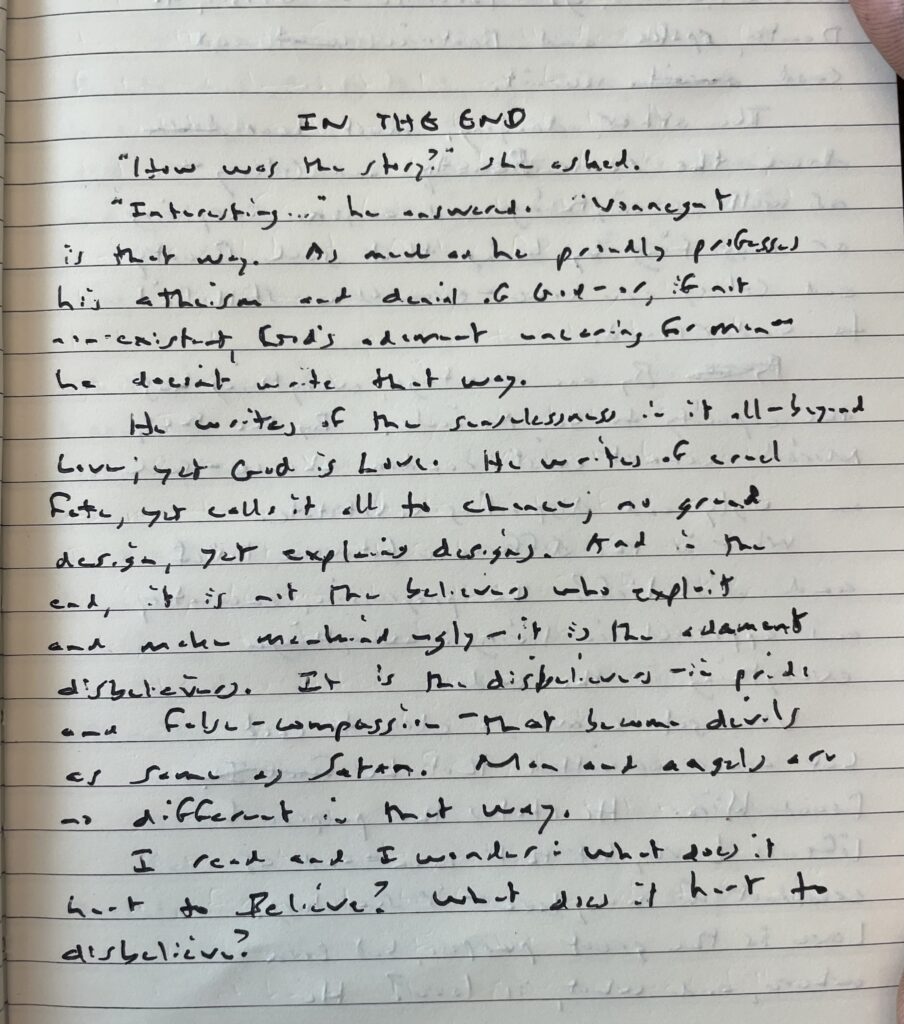 IN THE END
"How was the story?" she asked.
"Interesting..." he answered. "Vonnegut
is that way. As much as he proudly professes
his atheism and denial of God-or, if not
non-existent, God's adamant uncaring for man-
he doesn't write that way.
He writes of the senselessness in it all-beyond
Love; yet God is Love. He writes of cruel
Fate, yet calls it all to chance; no grand
design, yet explains designs. And in the
end, it is not the believers who exploit
and make mankind ugly-it is the adament
disbelievers. It is the disbelievers-in pride
and false-compassion-that become devils
as same as Satan. Man and angels are
no different in that way.
I read and I wonder: what does it
hurt to Believe? What does it hurt to
disbelieve?